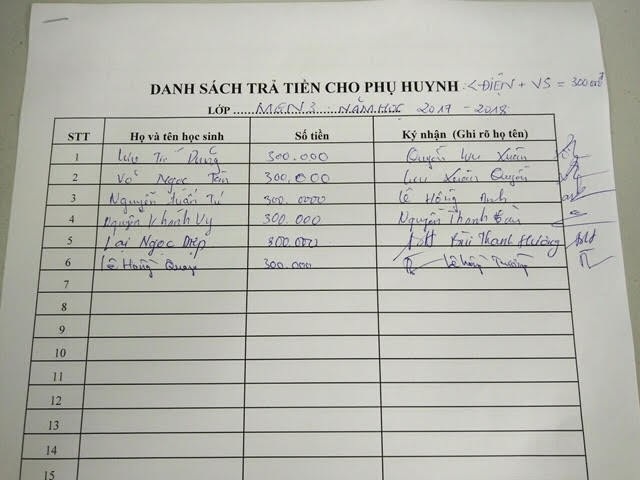 DANH SÁCH TRẢ TIỀN CHO PHỤ HUYNH : <ĐIỆN + VS = 300
LỚP MEN 3 : NĂM HỌC 2017 - 2018
STT Họ và tên học sinh Số tiền Ký nhận (Ghi rõ họ tên)
1 Lưu Dũng 300.000 Quyền Lưu Xuân
2 Võ Ngọc Tân 300.000 Lưu Xuân Quyền
3 Nguyễn Tuấn Tú 300.0000 Lê Hồng Anh
4 Nguyễn Khánh Vy 300.000 Nguyễn Thanh
5 Lại Ngọc Diệp 300.000 Bùi Thanh Hương
6 Lê Hồng 300.000 Lê Hồng
7
8
9
10
11
12
13
14
15